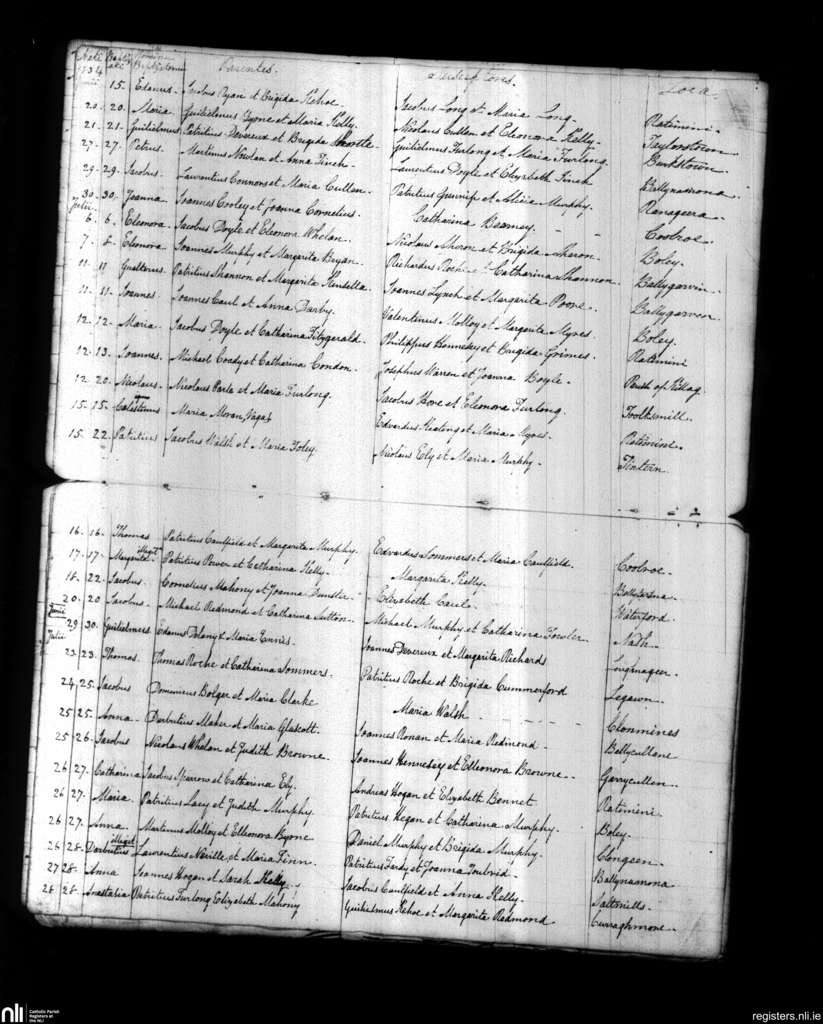 Nati Baptizati Nomina Baptizatorum Parentes. Susceptores. Loca
1834
Junii 15. Edanus Jacobus Ryan et Brigida Kehoe. Jacobus Long et Maria Long. Ratimini
20. 20. Maria Guilielmus Tyrne et Maria Kelly. Nicolaus Cullen et Eleonora Kelly. Taylorstown
21. 21. Guilielmus Patritius Devereux et Brigida Guilielmus Furlong et Maria Furlong. Burkstown
27. 27. Petrus Martinus Nowlan et Anna Finch. Laurentius Doyle et Elizabeth Finch Ballynamona
29. 29. Jacobus Laurentius Connors et Maria Cullen. Patritius et Alicia Murphy. Ranageera
30. 30. Joanna Joannes Cooley et Joanna Cornelius. Catharina Bearney - - Coolroe
Julii
6. 6. Eleonora Jacobus Doyle et Eleonora Whelan. Nicolaus Aheron et Brigida Aheron. Boley.
7. 8. Eleonora Joannes Murphy et Margarita Bryan. Richardus Roche et Catharina Shannon. Ballygarvin
11. 11 Gualterus Patritius Shannon et Margarita Kinsella. Joannes Lynch et Margarita Poore. Ballygarven
11. 11. Joannes Joannes Caul et Anna Darby. Valentinus Molloy et Margarita Myres. Boley
12. 12. Maria Jacobus Doyle et Catharina Fitzgerald. Philippus Hennesey et Brigida Grimes. Ratimini
12. 13. Joannes Michael Coady et Catharina Condon. Josephus Warren et Joanna Boyle. Parish of Killag
12. 20. Nicolaus Nicolaus Parle et Maria Furlong. Jacobus Hore et Eleonora Furlong. Foolksmill.
15. 15. Celestinus Maria Moran, Vaga Edvardus Keating et Maria Myres. Ratimini
15. 22. Patritius Jacobus Walsh et Maria Foley. Nicolaus Ely et Maria Murphy. Tintern
16. 16. Thomas Patritius Caulfield et Margarita Murphy. Edvardus Sommers et Maria Caulfield. Coolroe
17. 17. Margarita illegit. Patritius Power et Catharina Kelly. Margarita Kelly.
18. 22 Jacobus Cornelius Mahony et Joanna Dunster. Elizabeth Caul. Waterford
20. 20 Jacobus Michael Redmond et Catharina Sutton. Michael Murphy et Catharina Fowler. Nash
Junii
29 30. Guilielmus Edanus Delany et Maria Ennis. Joannes Devereux et Margarita Richards
Julii
23 23. Thomas Thomas Roche et Catharina Sommers. Patritius Roche et Brigida Cummerford Legawn
24. 25. Jacobus Dominicus Bolger et Maria Clarke Maria Walsh - - - - Clonmines
25 25. Anna Derbitius Maher et Maria Glascott. Joannes Ronan et Maria Redmond - Ballycullane
25. 26. Jacobus Nicolaus Whelan et Judith Browne. Joannes Hennesey et Elleonora Browne Garrycullen
26 27. Catharina Jacobus Sparrow et Catharina Ely. Andreas Hogan et Elizabeth Bennet Ratimini
26 27. Maria Patritius Lacy et Judith Murphy. Patritius Hegan et Catharina Murphy. Boley
26 27. Anna Martinus Molloy et Elleonora Byrne Daniel Murphy et Brigida Murphy. Clongeen
26 28. Derbitius illegit. Laurentius Neville et Maria Finn. Patritius Fardy et Joanna Ballynamona
27 28. Anna Joannes Hogan et Sarah Kelly. Jacobus Caulfield et Anna Kelly. Saltmills
28 28. Anastatia Patritius Furlong Elizabeth Mahony Guilielmus Kehoe et Margarita Redmond Curraghmore
nli Catholic Parish
Registers at
the NLI
registers.nli.ie